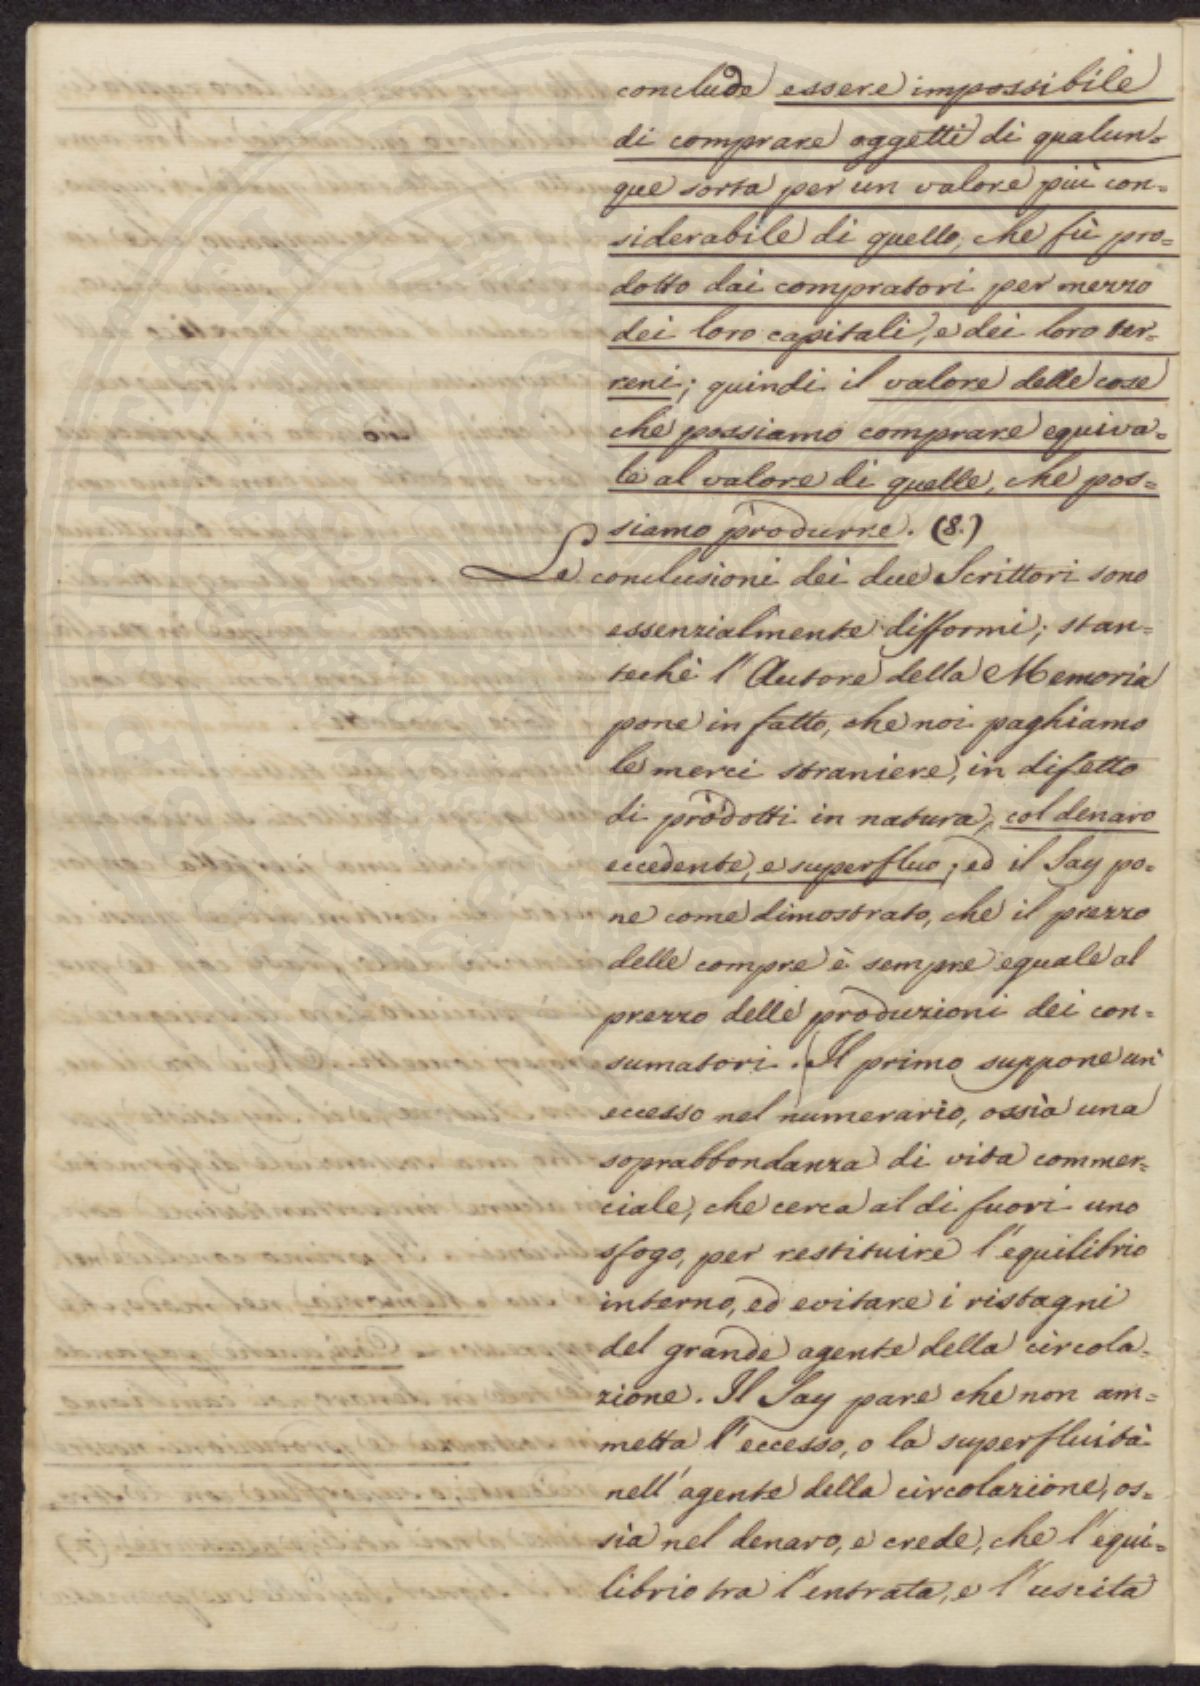 conclude essere impossibile
di comprare oggetti di qualun=
que sorta per un valore più con=
siderabile di quello, che fù pro=
dotto dai compratori per mezzo
dei loro capitali, e dei loro ter=
reni; quindi il valore delle cose
che possiamo comprare equiva=
le al valore di quelle, che pos=
siamo produrre. (8.)
Le conclusioni dei due Scrittori sono
essenzialmente difformi; stan=
techè l'Autore della Memoria
pone in fatto, che noi paghiamo
le merci straniere, in difetto
di prodotti in natura, col denaro
eccedente, e superfluo; ed il Say po=
ne come dimostrato, che il prezzo
delle compre è sempre eguale al
prezzo delle produzioni dei con=
sumatori. Il primo suppone un
eccesso nel numerario, ossia una
soprabbondanza di vita commer=
ciale, che cerca al di fuori uno
sfogo, per restituire l'equilibrio
interno, ed evitare i ristagni
del grande agente della circola=
zione. Il Say pare che non am=
metta l'eccesso, o la superfluità
nell'agente della circolazione, os=
sia nel denaro, e crede, che l'equi=
librio tra l'entrata, e l'uscita